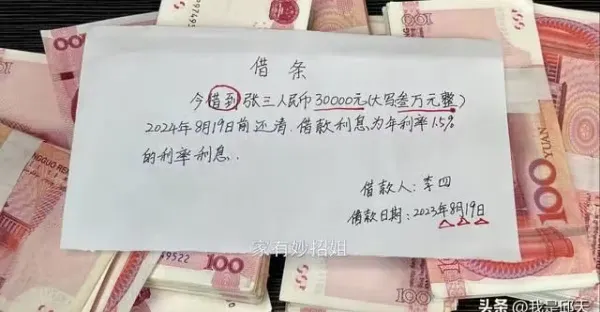 借条
今借到张三人民币30000元(大写叁万元整)
2024年8月19日前还清.借款利息为年利率1.5%
的利率利息.
借款人:李四
借款日期:2023年8月19日
家有妙招姐
100
100
100
头条 @我是邱天